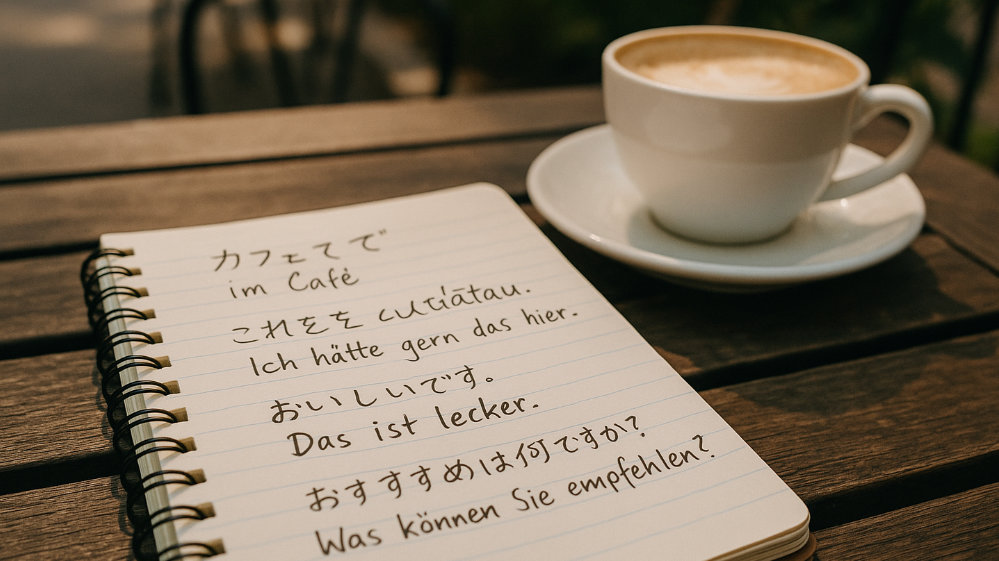 カフェてで
im Café
これをを
Ich hätte gern das hier.
おいしいです。
Das ist lecker.
おすすすめは何ですか?
Was können Sie empfehlen?